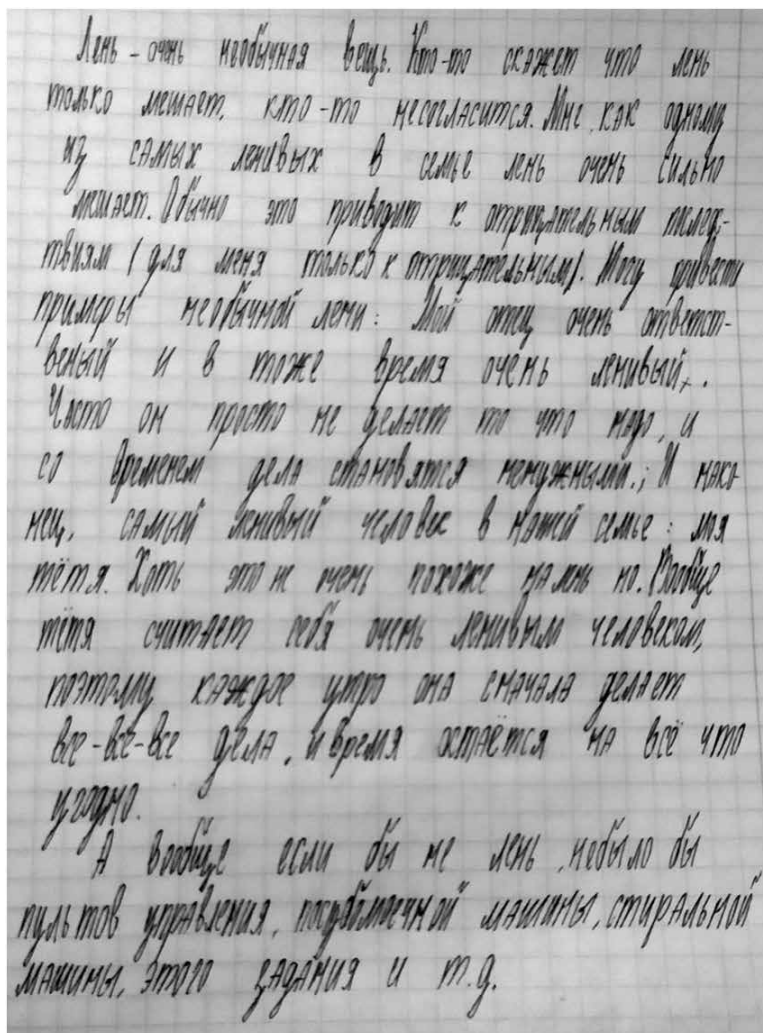 Лень - очень необычная вещь. Кто-то скажет что лень
только мешает, кто-то несогласится. Мне, как одному
из самых ленивых в семье лень очень сильно
мешает. Обычно это приводит к отрицательным послед-
ствиям (для меня только к отрицательным). Могу привести
примеры необычной лени: Мой отец очень ответст-
веный и в тоже время очень ленивый.
Часто он просто не делает то что надо, и
со временем дела становятся ненужными.; И нако-
нец, самый ленивый человек в нашей семье: моя
тётя. Хоть это не очень похоже на лень но. Вообще
тётя считает себя очень ленивым человеком,
поэтому каждое утро она сначала делает
все-все-все дела, и время остаётся на всё что
угодно.
А вообще если бы не лень, небыло бы
пультов управления, посудомоечной машины, стиральной
машины, этого задания и т.д.